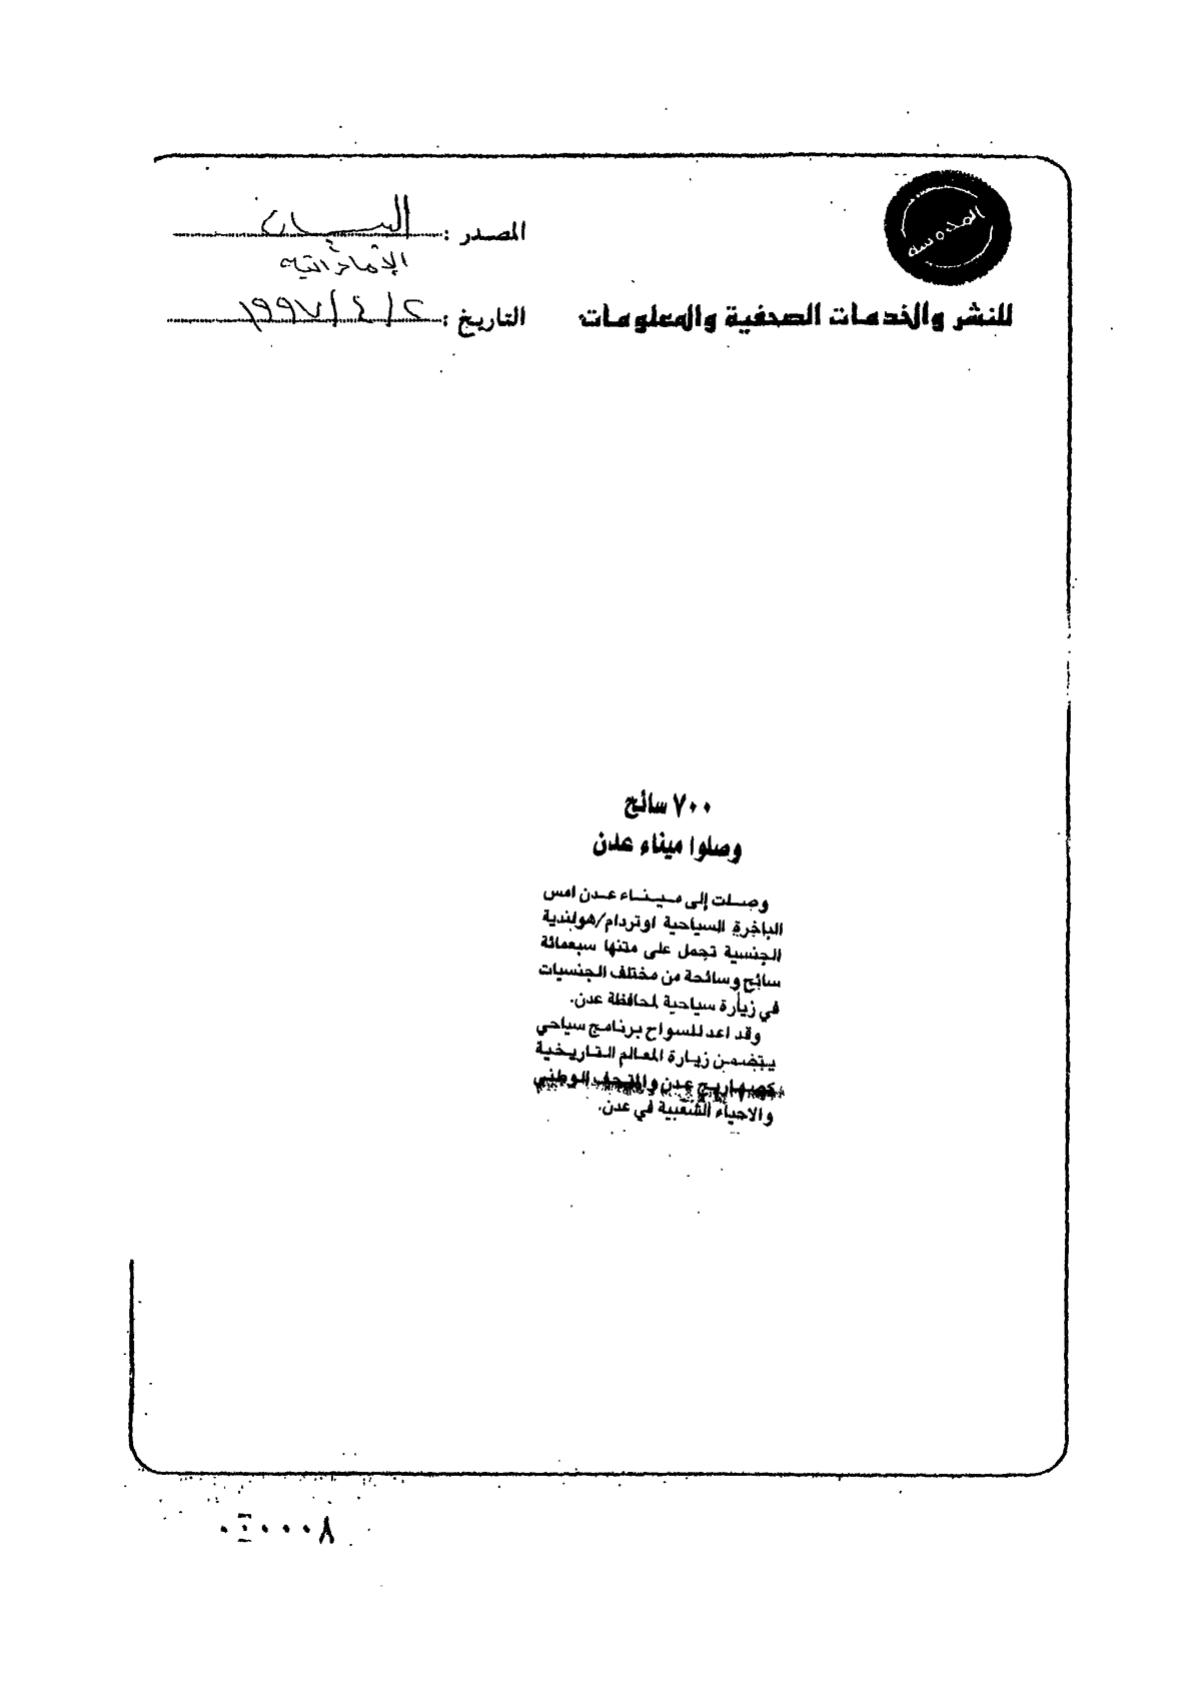 المصدر : البيان
الإماراتية
للنشر والخدمات الصحفية والمعلومات
التاريخ : ٢ / ٤ / ١٩٩٧
٧٠٠ سائح
وصلوا ميناء عدن
وصلت إلى ميناء عدن امس
الباخرة السياحية اوتردام/هولندية
الجنسية تحمل على متنها سبعمائة
سائح وسائحة من مختلف الجنسيات
في زيارة سياحية لمحافظة عدن.
وقد اعد للسواح برنامج سياحي
يتضمن زيارة المعالم التاريخية
كصهاريج عدن والمتحف الوطني
والاحياء الشعبية في عدن.